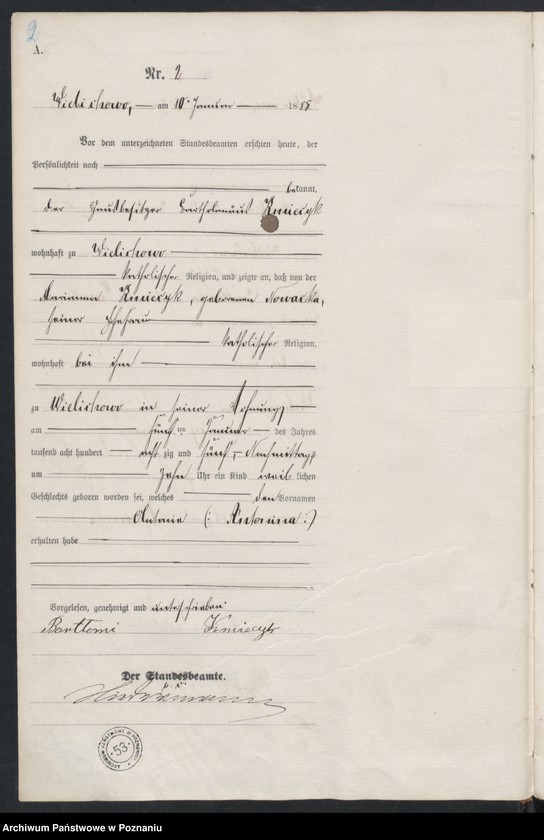 2
A.
Nr. 2
Wielichowo, am 10ten Januar 1885
Vor dem unterzeichneten Standesbeamten erschien heute, der
Persönlichkeit nach
bekannt,
der Hausbesitzer Bartholomäus Kmieczyk
wohnhaft zu Wielichowo
katholischer Religion, und zeigte an, daß von der
Marianna Kmieczyk, geborenen Nowacka,
seiner Ehefrau
katholischer Religion,
wohnhaft bei ihm
zu Wielichowo in seiner Wohnung
am fünften Januar des Jahres
tausend acht hundert acht zig und fünf, Nachmittags
um zehn Uhr ein Kind weib lichen
Geschlechts geboren worden sei, welches den Vornamen
Antonie (: Antonina :)
erhalten habe
Vorgelesen, genehmigt und unterschrieben
Bartłomi Kmieczyk
Der Standesbeamte.
ARCHIWUM PAŃSTWOWE W POZNANIU
53
Archiwum Państwowe w Poznaniu